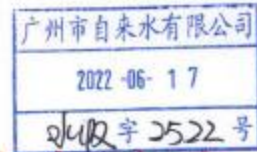 广州市自来水有限公司
2022-06-17
水收字2522号